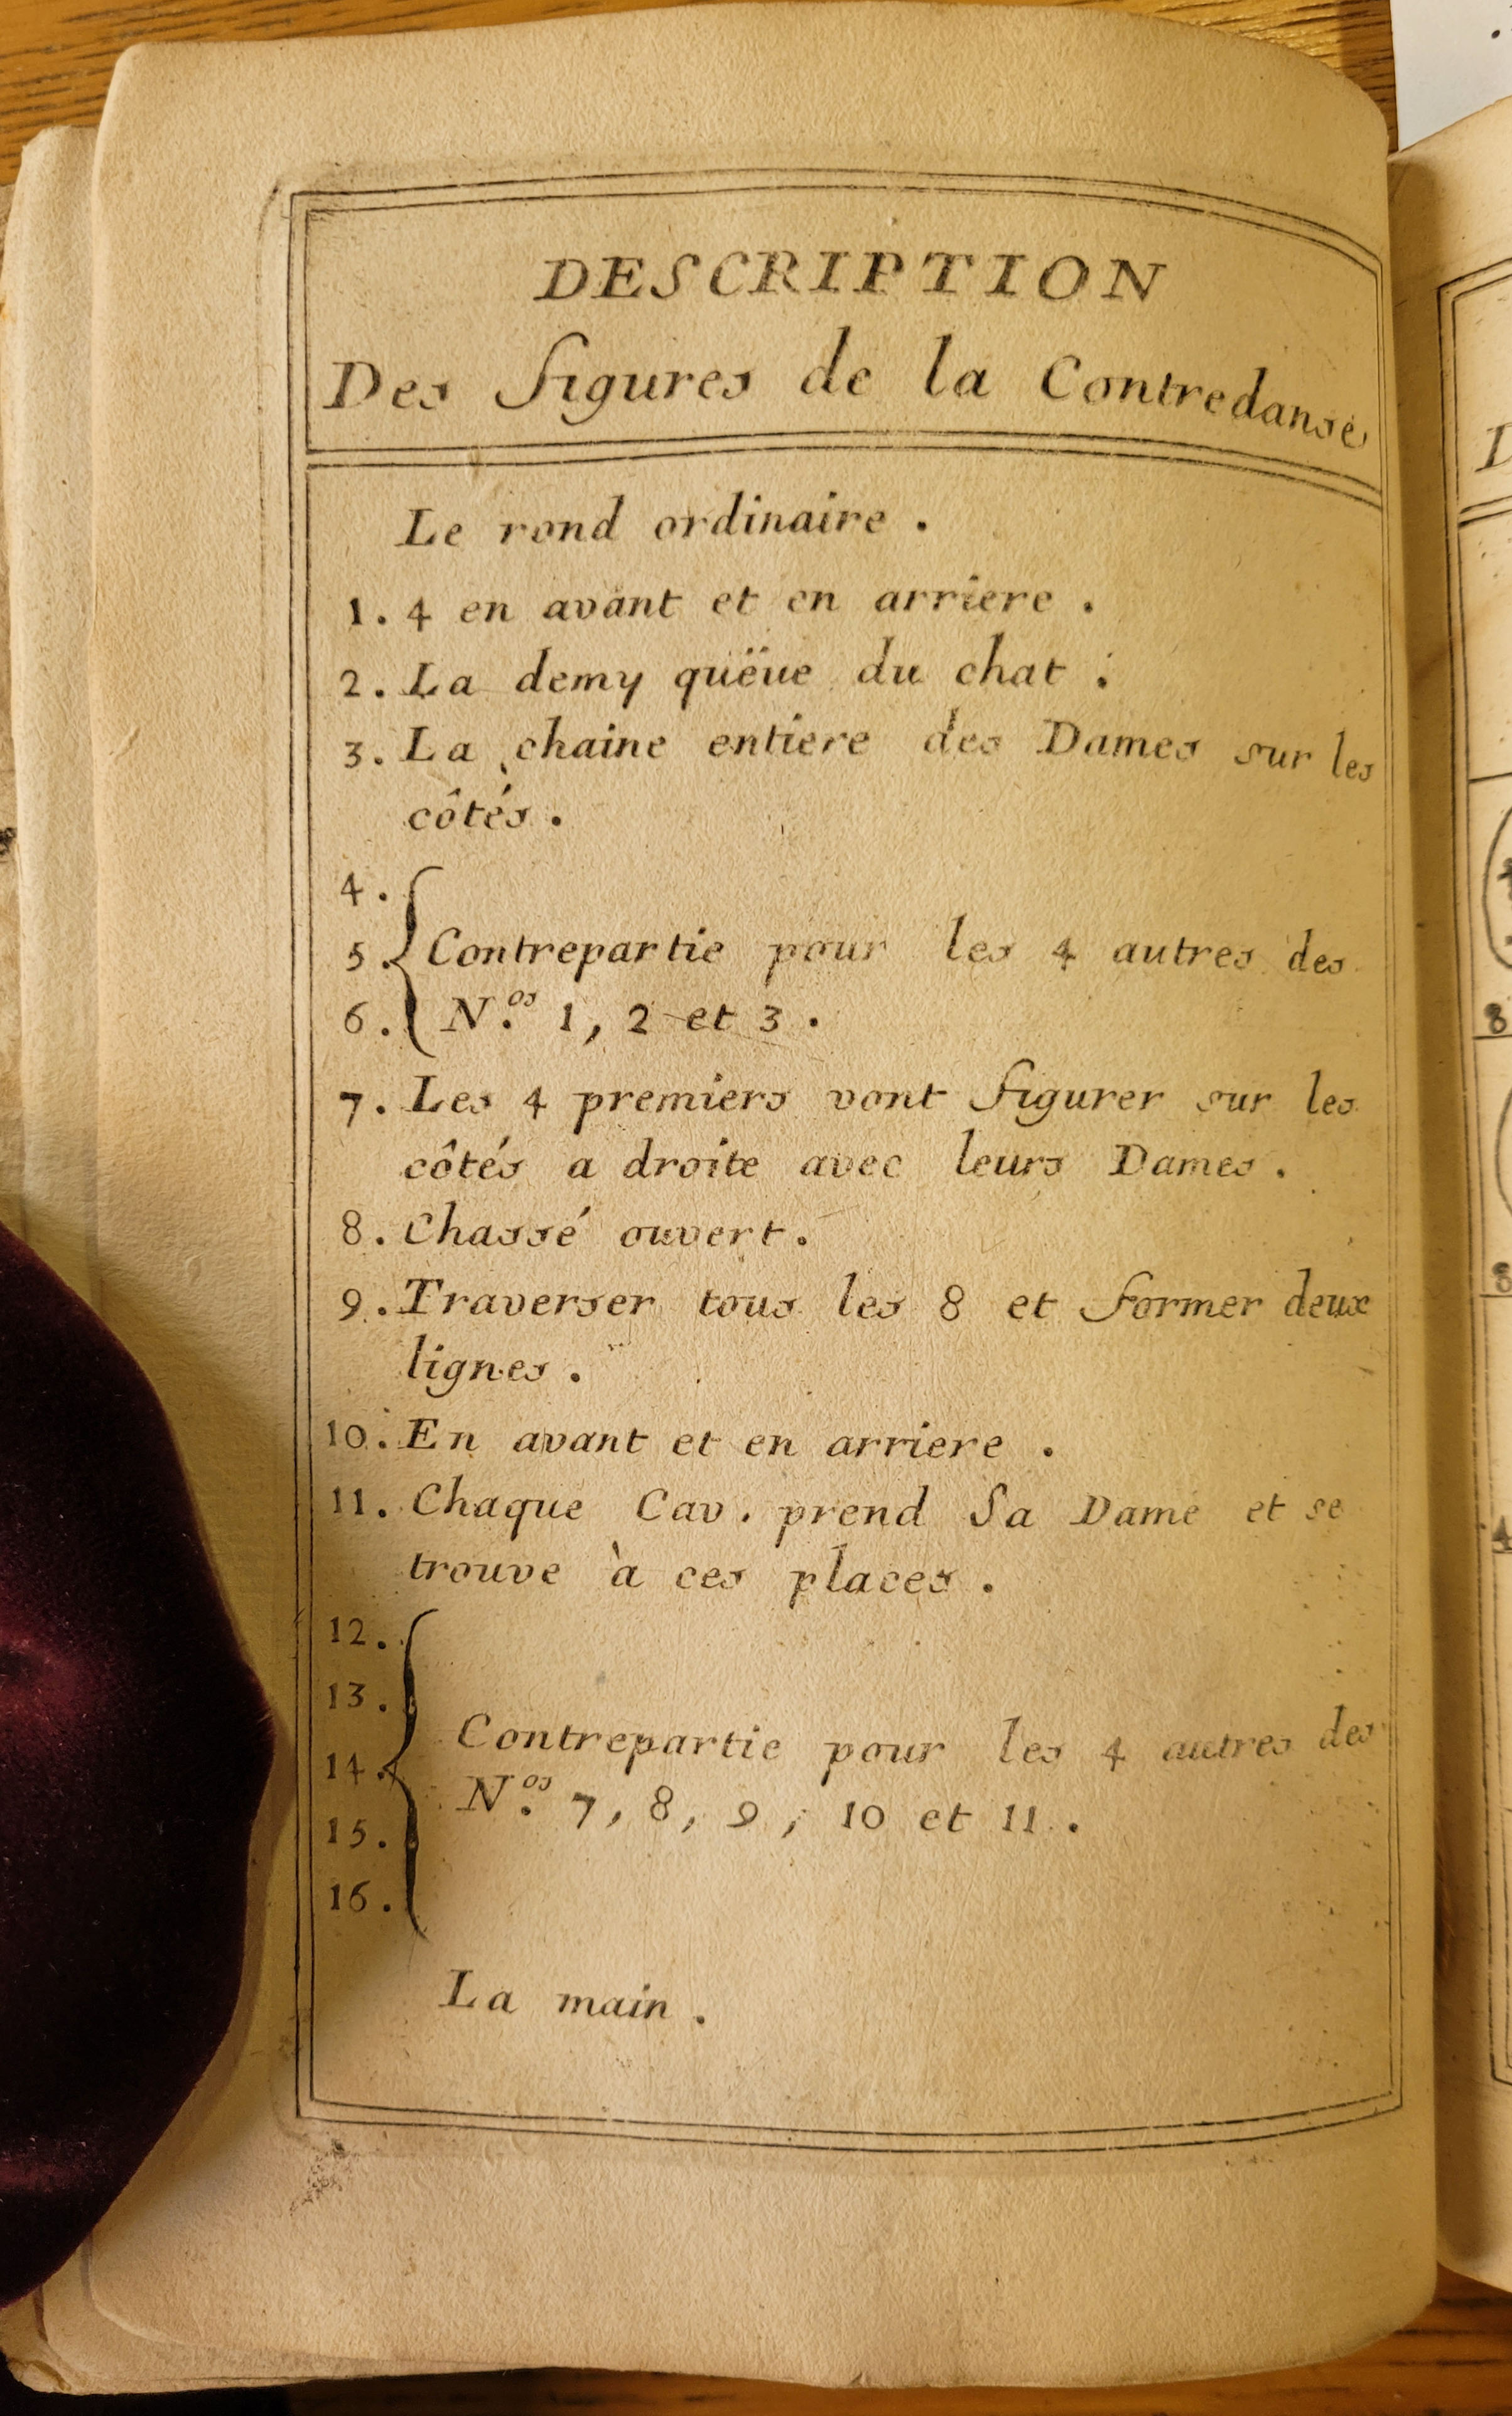 DESCRIPTION
Des figures de la Contredanse
Le rond ordinaire .
1. 4 en avant et en arriere .
2. La demy quëue du chat .
3. La chaine entiere des Dames sur les
côtés .
4.
5. Contrepartie pour les 4 autres des
6. N.os 1, 2 et 3 .
7. Les 4 premiers vont figurer sur les
côtés a droite avec leurs Dames .
8. Chassé ouvert.
9. Traverser tous les 8 et former deux
lignes .
10. En avant et en arriere .
11. Chaque Cav. prend Sa Dame et se
trouve à ces places .
12.
13.
14. Contrepartie pour les 4 autres des
N.os 7, 8, 9, 10 et 11 .
15.
16.
La main .
D
8
8
4